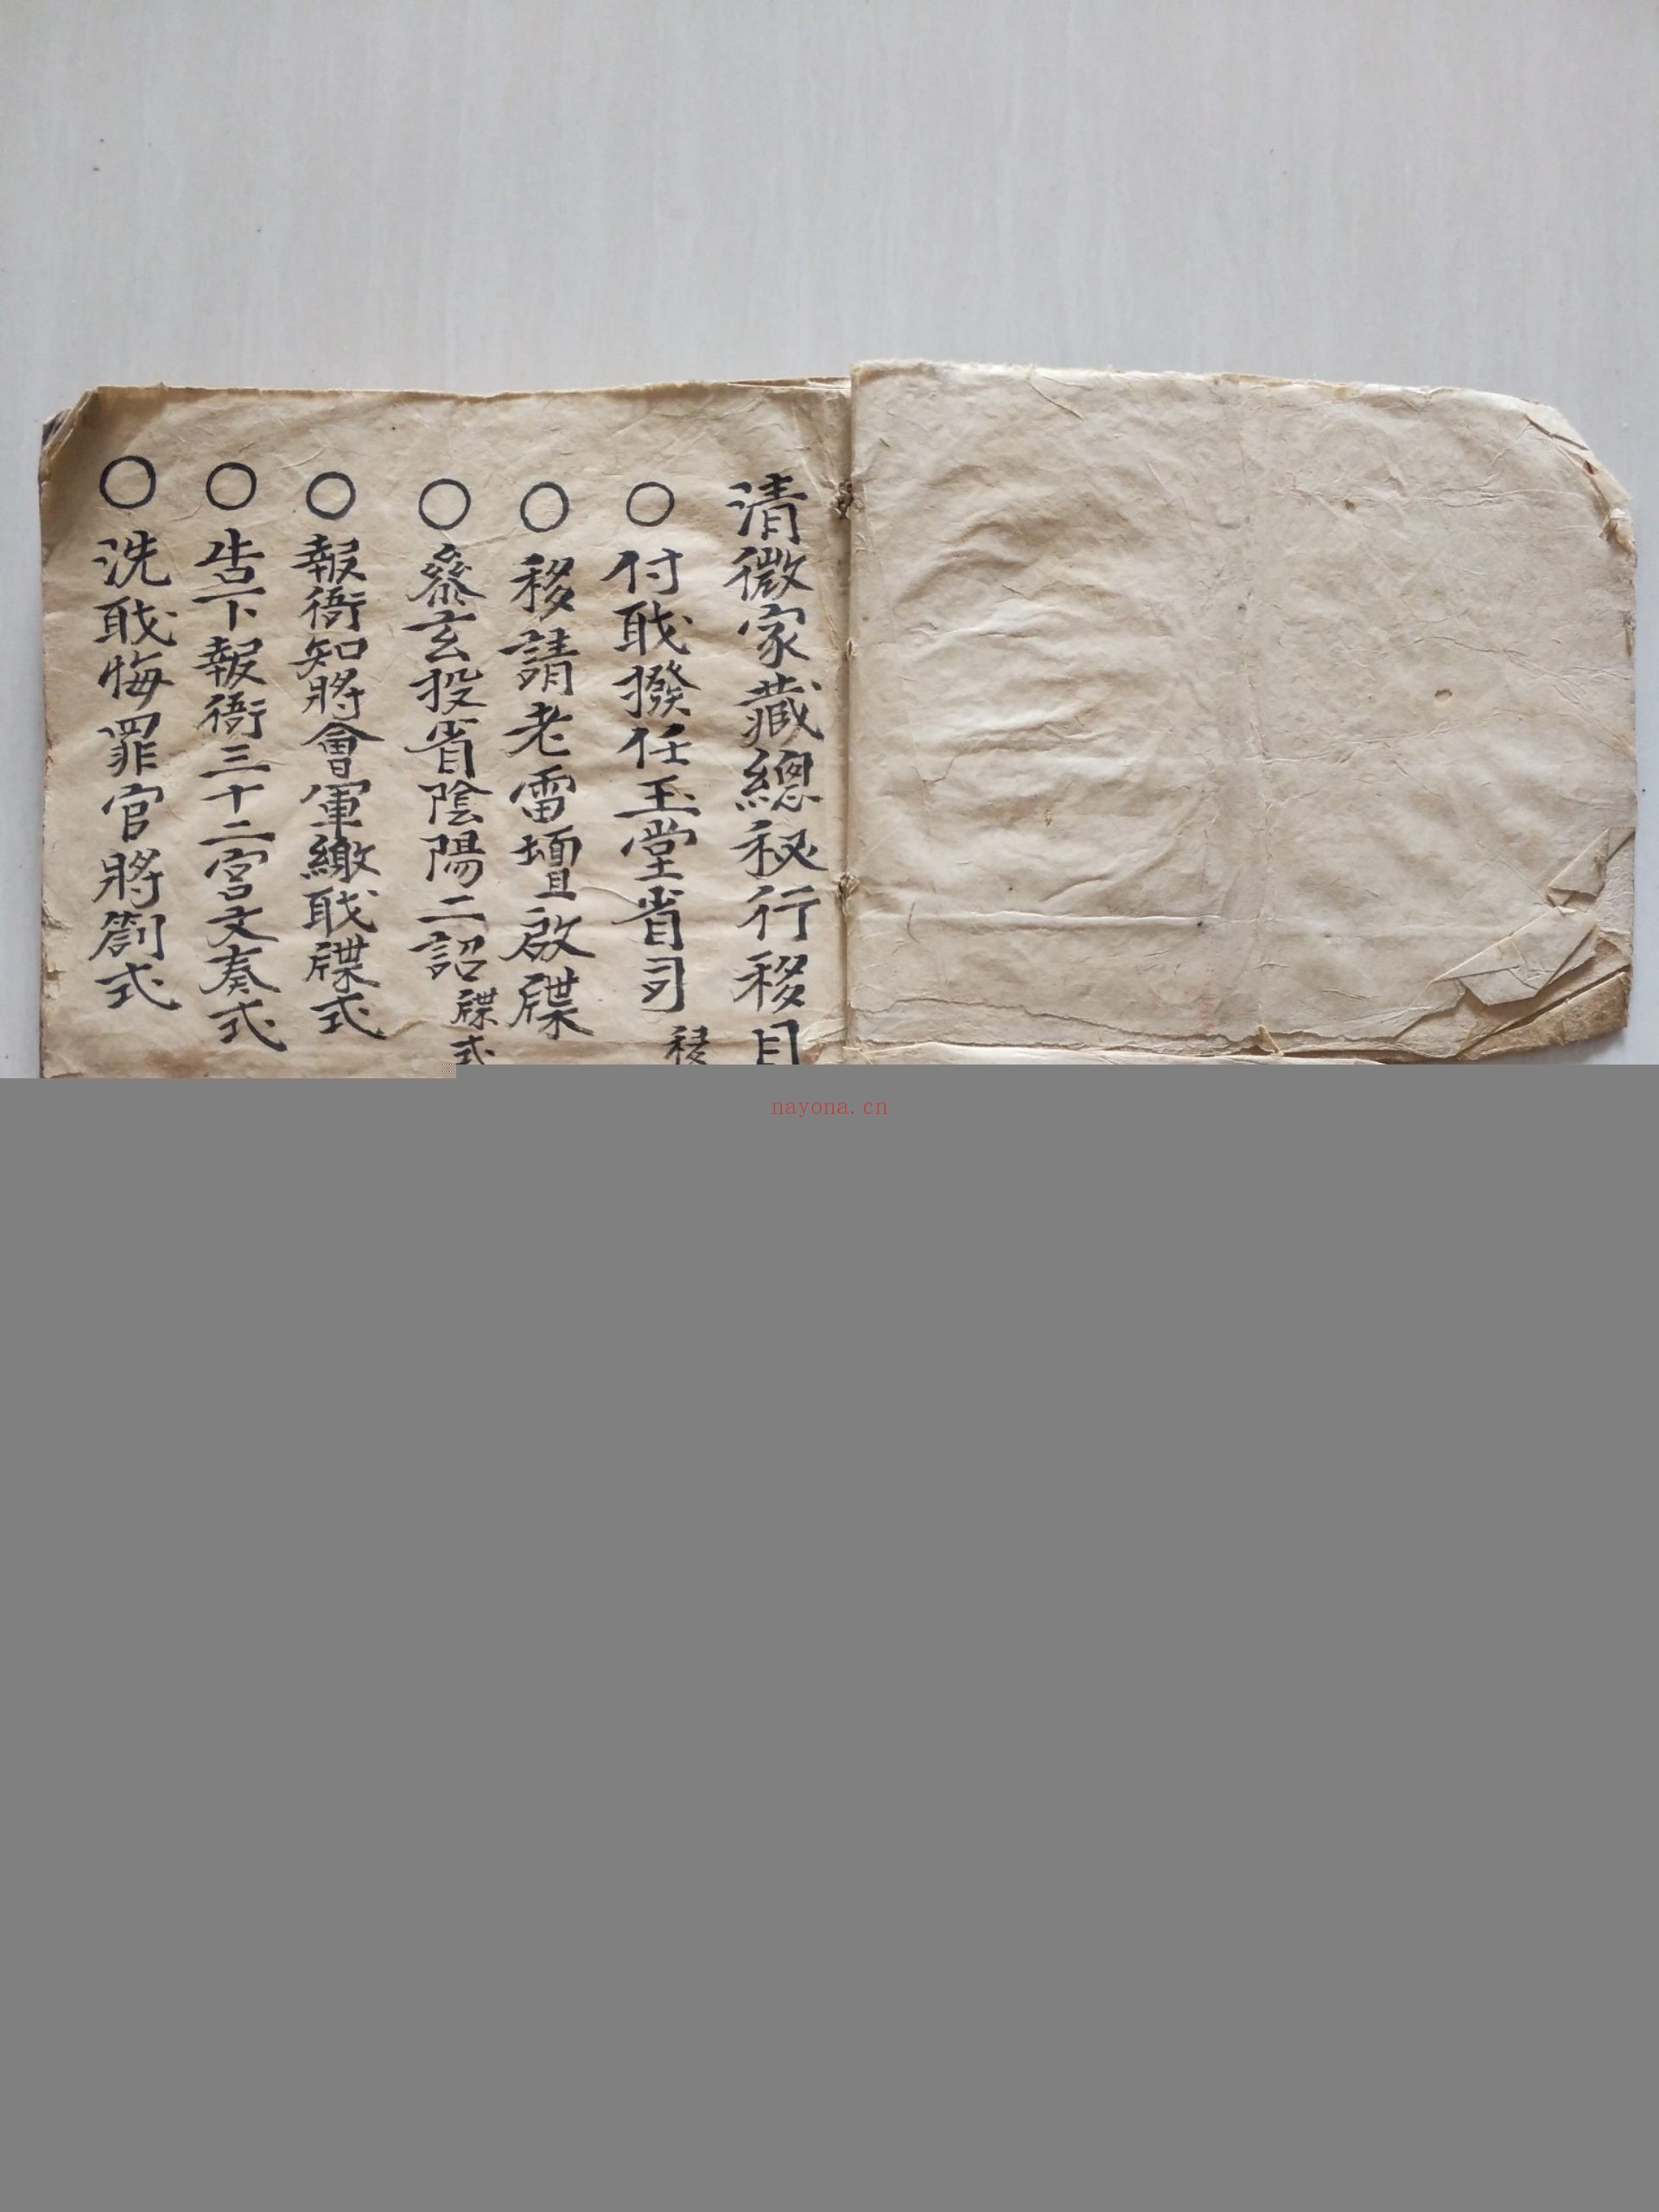 清微家藏總秘行移目
○付职撥任玉堂省司 移
○移請老雷壇啟牒
○叅玄投省陰陽二詔 牒式
○報衙知將會軍繳职牒式
○告下報衙三十二宮文奏式
○洗职悔罪官將劄式
nayona.cn